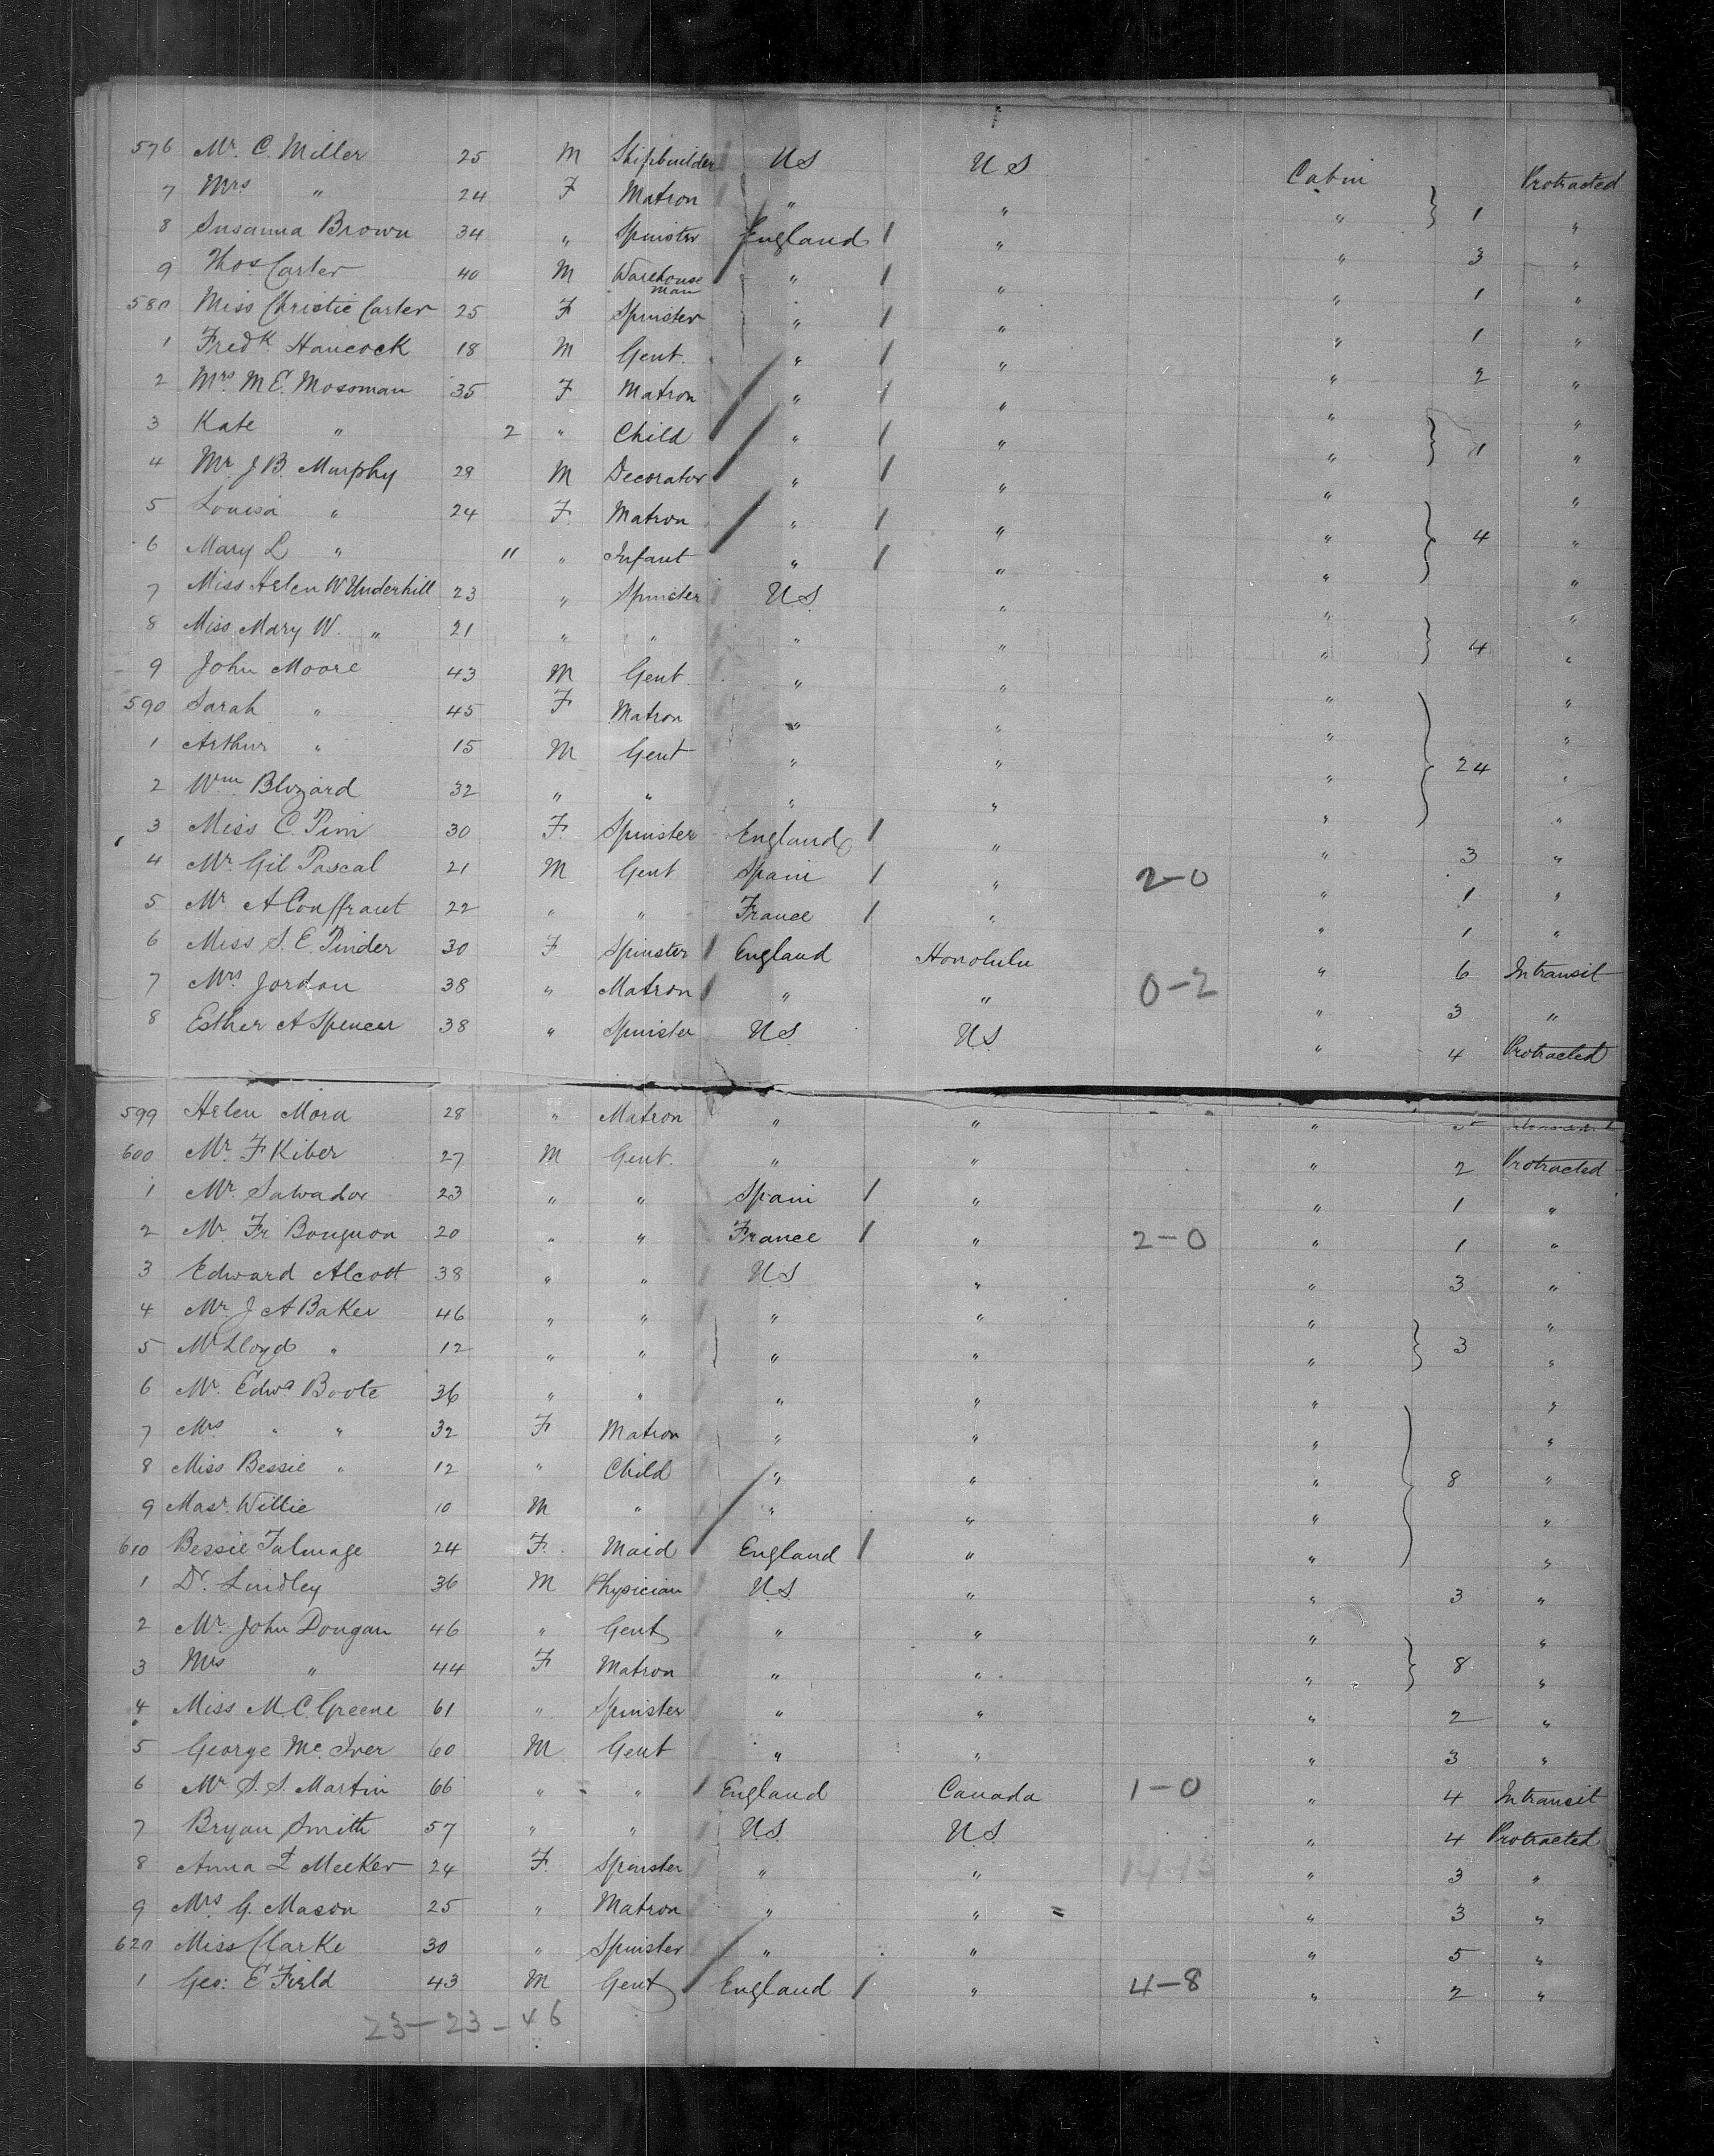 576 Mr. C. Miller 25 M Shipbuilder US US Cabin Protracted
7 Mrs " 24 F Matron " " " } 1 "
8 Susanna Brown 34 " Spinster England / " " 3 "
9 Thos Carter 40 M Warehouse man " / " " 1 "
580 Miss Christie Carter 25 F Spinster " / " " 1 "
1 Fredk. Hancock 18 M Gent. " / " " 2 "
2 Mrs. M E. Mossman 35 F Matron " / " " "
3 Kate " 2 " Child " / " " } 1 "
4 Mr. J. B. Murphy 29 M Decorator " / " " "
5 Louisa " 24 F. Matron " / " " } 4 "
6 Mary L " 11 " Infant " / " " "
7 Miss Helen W Underhill 23 " Spinster US " " "
8 Miss Mary W. " 21 " " " " " } 4 "
9 John Moore 43 M Gent. " " " "
590 Sarah " 45 F Matron " " " "
1 Arthur " 15 M Gent " " " } 24 "
2 Wm. Blizard 32 " " " " " "
3 Miss C. Pim 30 F. Spinster England / " " 3 "
4 Mr. Gil Pascal 21 M Gent Spain / " 2-0 " 1 "
5 Mr. A Couffraut 22 " " France / " " 1 "
6 Miss S. E. Pinder 30 F Spinster / England Honolulu " 6 Intransit
7 Mrs. Jordan 38 " Matron / " " 0-2 " 3 "
8 Esther A Spencer 38 " Spinster US. US. " 4 Protracted
599 Helen Mora 28 " Matron " " "
600 Mr. F Kiber 27 M Gent. " " " 2 Protracted
1 Mr. Salvador 23 " " Spain / " " 1 "
2 Mr. Fr Bouguon 20 " " France / " 2-0 " 1 "
3 Edward Alcott 38 " " US " " 3 "
4 Mr. J A Baker 46 " " " " " "
5 Mr Lloyd " 12 " " " " " } 3 "
6 Mr. Edwd Boote 36 " " " " " "
7 Mrs " " 32 F Matron " " " "
8 Miss Bessie " 12 " Child " " " } 8 "
9 Masr. Willie 10 M " " " " "
610 Bessie Talmage 24 F. Maid England / " " "
1 Dr. Lindley 36 M Physician US. " " 3 "
2 Mr. John Dougan 46 " Gent " " " "
3 Mrs " 44 F Matron " " " } 8 "
4 Miss M. C. Greene 61 " Spinster " " " 2 "
5 George Mc. Iver 60 M Gent " " " 3 "
6 Mr. S. S. Martin 66 " " / England Canada 1-0 " 4 Intransit
7 Bryan Smith 57 " " US. US. " 4 Protracted
8 Anna L Meeker 24 F. Spinster " " 14-13 " 3 "
9 Mrs. G. Mason 25 " Matron " " = " 3 "
620 Miss Clarke 30 " Spinster " " " 5 "
1 Geo: E Field 43 M Gent England / " 4-8 " 2 "
23-23-46